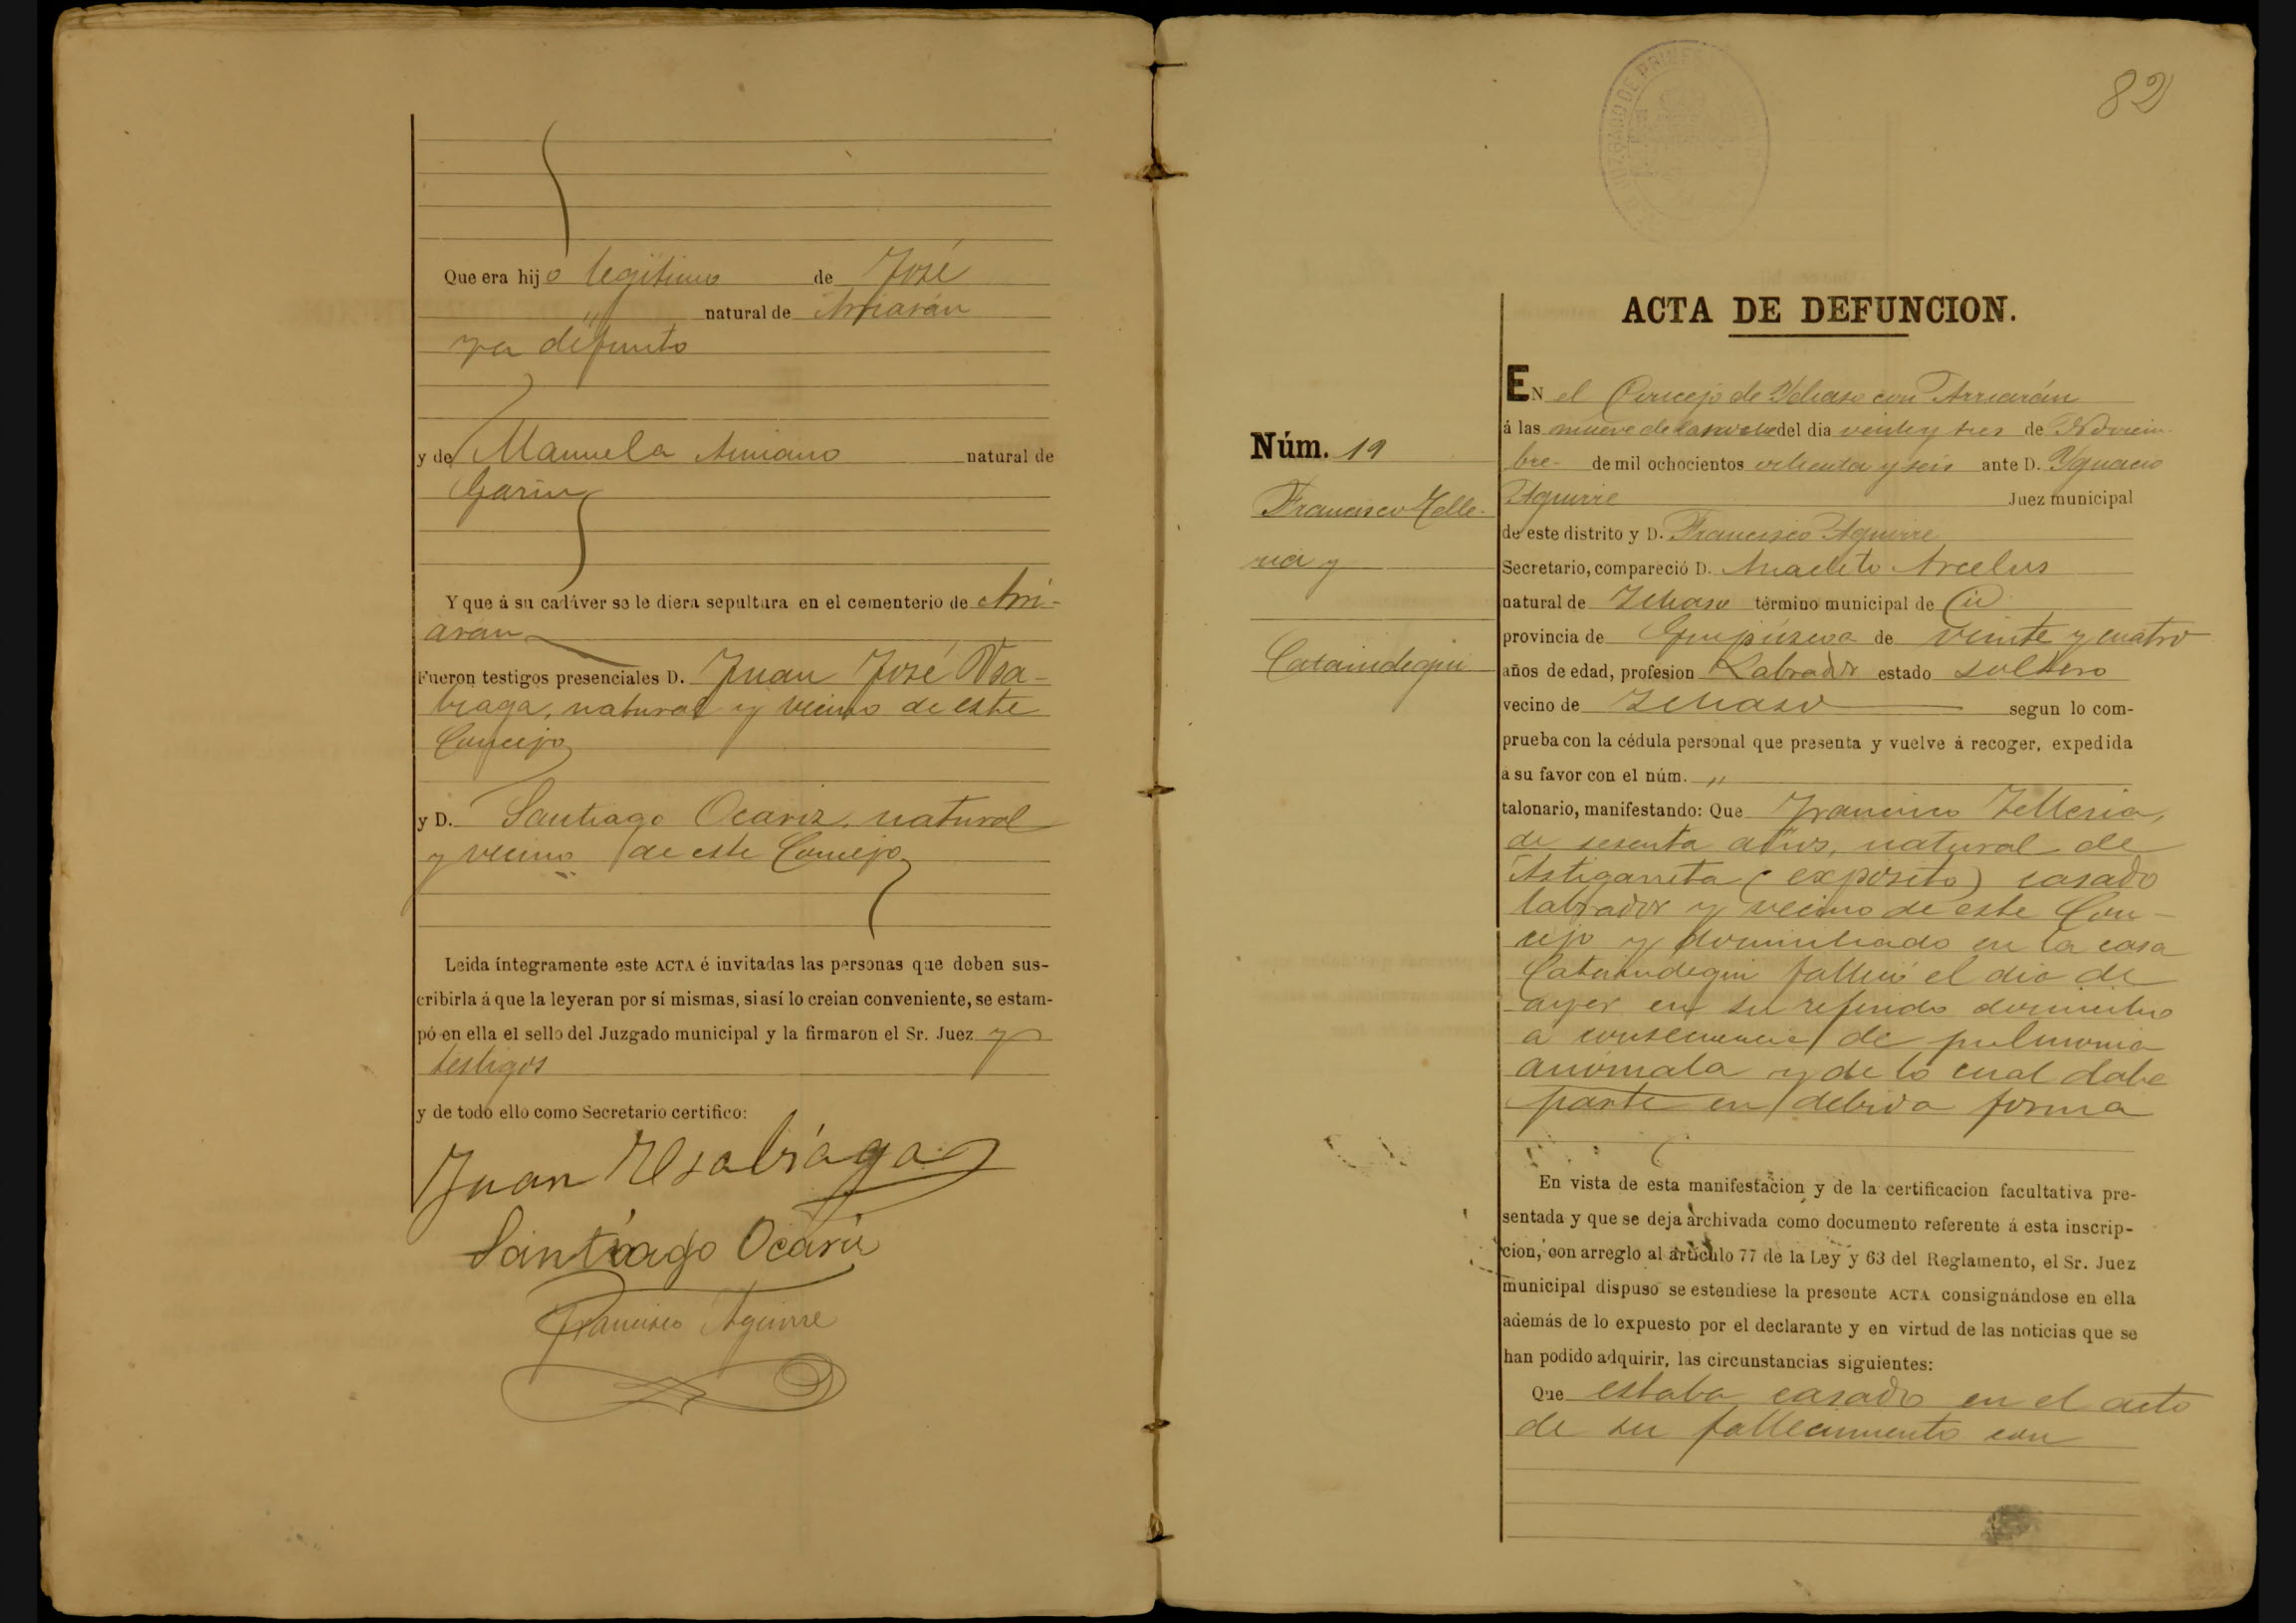 Que era hijo legítimo de José
" natural de Arriarán
ya difunto
y de Manuela Amiano natural de
Garin
Y que á su cadáver se le diera sepultura en el cementerio de Arri-
aran
Fueron testigos presenciales D. Juan José Usa-
biaga, natural y vecino de este
Concejo
y D. Santiago Ocariz, natural
y vecino de este Concejo
Leida íntegramente este ACTA é invitadas las personas que deben sus-
cribirla á que la leyeran por sí mismas, si así lo creian conveniente, se estam-
pó en ella el sello del Juzgado municipal y la firmaron el Sr. Juez y
testigos
y de todo ello como Secretario certifico:
Juan Usabiaga
Santiago Ocariz
Francisco Aguirre
82
JUZGADO DE PRIMERA
ACTA DE DEFUNCION.
Núm. 19
Francisco Telle-
ria y
Cataindegui
EN el Concejo de Ychaso con Arriarán
á las nueve de la noche del dia veinte y tres de Noviem-
bre de mil ochocientos ochenta y seis ante D. Ygnacio
Aguirre Juez municipal
de este distrito y D. Francisco Aguirre
Secretario, compareció D. Anacleto Arcelus
natural de Ichaso término municipal de id
provincia de Guipúzcoa de veinte y cuatro
años de edad, profesion Labrador estado soltero
vecino de Ichaso segun lo com-
prueba con la cédula personal que presenta y vuelve á recoger, expedida
a su favor con el núm. "
talonario, manifestando: Que Francisco Telleria,
de sesenta años, natural de
Astigarreta (expósito) casado
labrador y vecino de este Con-
cejo y domiciliado en la casa
Cataindegui falleció el dia de
ayer en su referido domicilio
a consecuencia de pulmonia
anómala y de lo cual daba
parte en debida forma
En vista de esta manifestacion y de la certificacion facultativa pre-
sentada y que se deja archivada como documento referente á esta inscrip-
cion, con arreglo al artículo 77 de la Ley y 63 del Reglamento, el Sr. Juez
municipal dispuso se estendiese la presente ACTA consignándose en ella
además de lo expuesto por el declarante y en virtud de las noticias que se
han podido adquirir, las circunstancias siguientes:
Que estaba casado en el acto
de su fallecimiento con